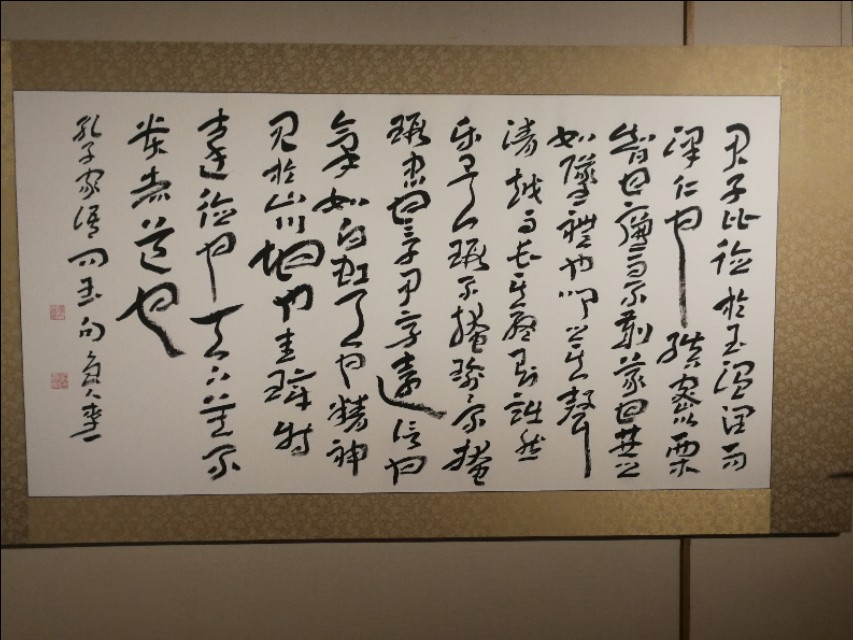 君子比德於玉温润而
澤仁也縝密以栗
智也廉而不劌義也垂之
如墜禮也叩之其聲
清越而長其終則詘然
樂矣瑕不掩瑜不掩
瑕忠也孚尹旁達信也
氣如白虹天也精神
見於山川地也圭璋特
達德也天下莫不
貴者道也
孔子家語问玉句